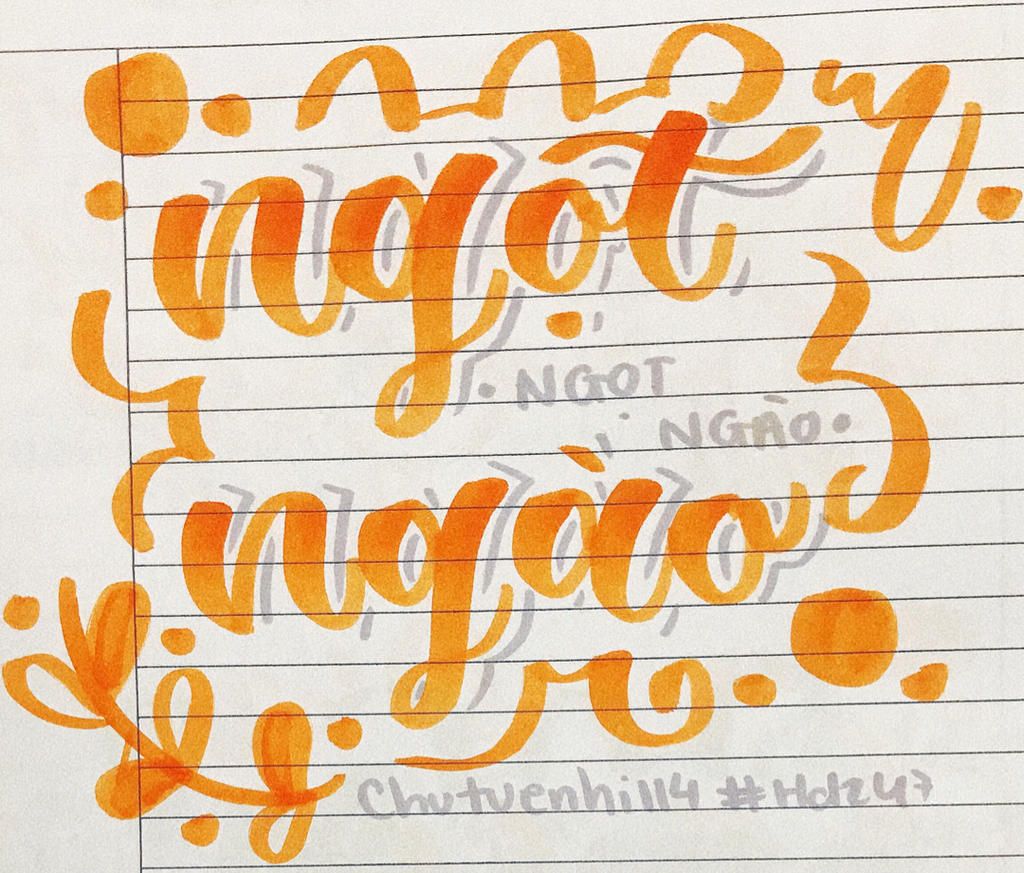 ngọt
• NGOT
NGÀO •
ngào
Chutuenhi114 #Hdz47